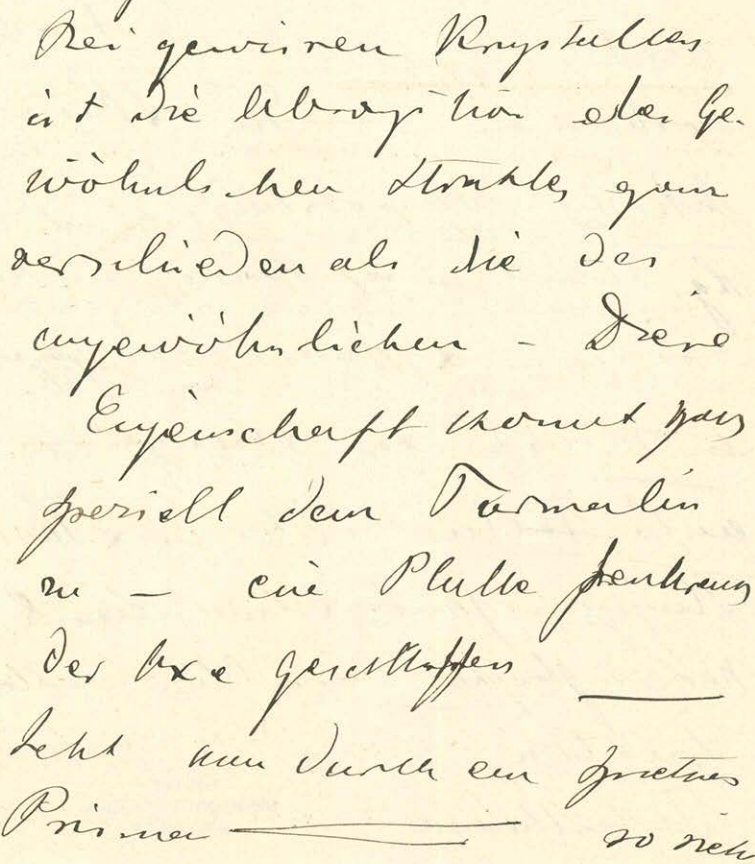 Bei gewissen Krystallen
ist die Absorption des Ge-
wöhnlichen Strahles ganz
verschieden als die des
ungewöhnlichen – Diese
Eigenschaft kommt ganz
speziell dem Turmalin
zu – eine Platte senkrecht
der Axe geschliffen
Seht man durch ein
Prisma so sieht